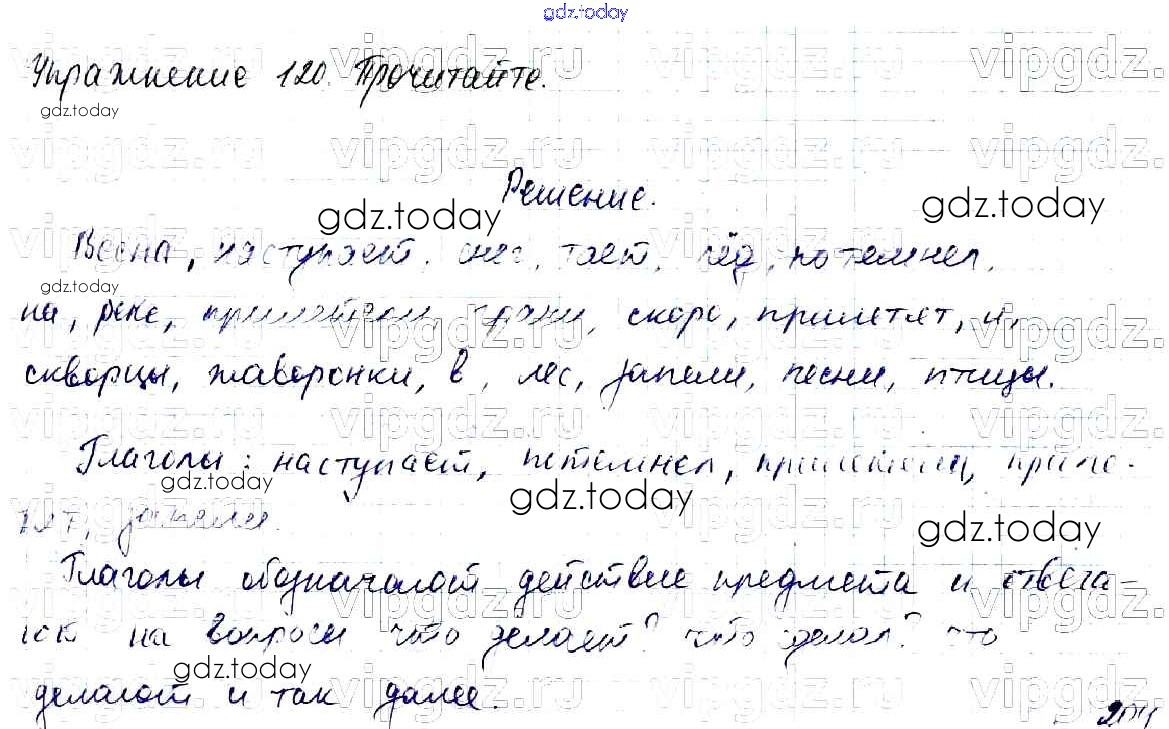 gdz.today
Упражнение 120. Прочитайте.
Решение.
Весна, наступает, снег, тает, лёд, потемнел,
на, реке, прилетели, грачи, скоро, прилетят, и,
скворцы, жаворонки, в, лес, запели, песни, птицы.
Глаголы: наступает, потемнел, прилетели, приле-
тят, запели.
Глаголы обозначают действие предмета и отвеча
ют на вопросы что делает? что делал? что
делают и так далее.